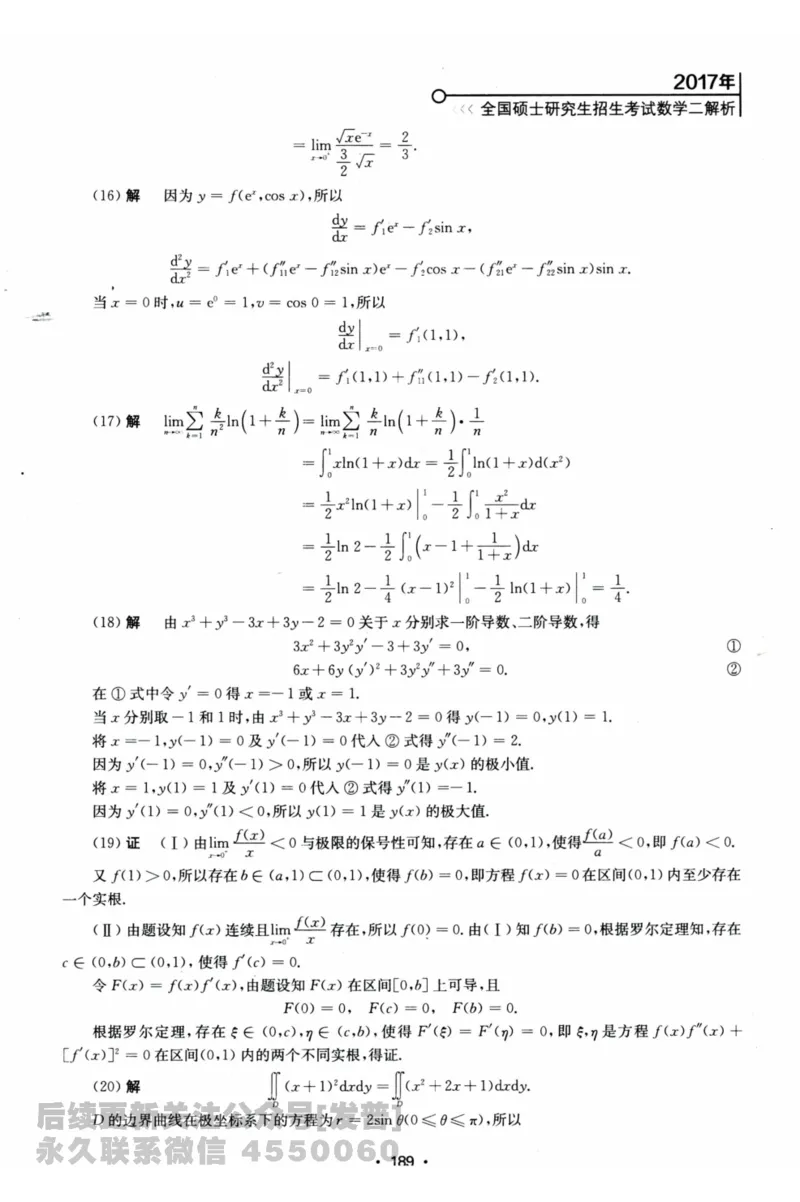 2017年
<<< 全国硕士研究生招生考试数学二解析
= lim_{x→0⁺} (√x e^{-x})/((3/2)√x) = 2/3.
(16) 解 因为 y = f(eˣ,cos x),所以
dy/dx = f′₁eˣ − f′₂sin x,
d²y/dx² = f′₁eˣ + (f″₁₁eˣ − f″₁₂sin x)eˣ − f′₂cos x − (f″₂₁eˣ − f″₂₂sin x)sin x.
当 x = 0 时,u = e⁰ = 1,v = cos 0 = 1,所以
dy/dx|_{x=0} = f′₁(1,1),
d²y/dx²|_{x=0} = f′₁(1,1) + f″₁₁(1,1) − f′₂(1,1).
(17) 解 lim_{n→∞} ∑_{k=1}^{n} (k/n²)ln(1 + k/n) = lim_{n→∞} ∑_{k=1}^{n} (k/n)ln(1 + k/n)·(1/n)
= ∫₀¹ xln(1+x)dx = (1/2)∫₀¹ ln(1+x)d(x²)
= (1/2)x²ln(1+x)|₀¹ − (1/2)∫₀¹ x²/(1+x) dx
= (1/2)ln 2 − (1/2)∫₀¹ (x − 1 + 1/(1+x))dx
= (1/2)ln 2 − (1/4)(x−1)²|₀¹ − (1/2)ln(1+x)|₀¹ = 1/4.
(18) 解 由 x³ + y³ − 3x + 3y − 2 = 0 关于 x 分别求一阶导数、二阶导数,得
3x² + 3y²y′ − 3 + 3y′ = 0, ①
6x + 6y (y′)² + 3y²y″ + 3y″ = 0. ②
在①式中令 y′ = 0 得 x = −1 或 x = 1.
当 x 分别取 −1 和 1 时,由 x³ + y³ − 3x + 3y − 2 = 0 得 y(−1) = 0,y(1) = 1.
将 x = −1,y(−1) = 0 及 y′(−1) = 0 代入②式得 y″(−1) = 2.
因为 y′(−1) = 0,y″(−1) > 0,所以 y(−1) = 0 是 y(x) 的极小值.
将 x = 1,y(1) = 1 及 y′(1) = 0 代入②式得 y″(1) = −1.
因为 y′(1) = 0,y″(1) < 0,所以 y(1) = 1 是 y(x) 的极大值.
(19) 证 (Ⅰ) 由 lim_{x→0⁺} f(x)/x < 0 与极限的保号性可知,存在 a ∈ (0,1),使得 f(a)/a < 0,即 f(a) < 0.
又 f(1) > 0,所以存在 b ∈ (a,1) ⊂ (0,1),使得 f(b) = 0,即方程 f(x) = 0 在区间(0,1) 内至少存在
一个实根.
(Ⅱ) 由题设知 f(x) 连续且 lim_{x→0⁺} f(x)/x 存在,所以 f(0) = 0. 由(Ⅰ)知 f(b) = 0,根据罗尔定理知,存在
c ∈ (0,b) ⊂ (0,1), 使得 f′(c) = 0.
令 F(x) = f(x)f′(x),由题设知 F(x) 在区间[0,b] 上可导,且
F(0) = 0, F(c) = 0, F(b) = 0.
根据罗尔定理,存在 ξ ∈ (0,c),η ∈ (c,b),使得 F′(ξ) = F′(η) = 0,即 ξ,η 是方程 f(x)f″(x) +
[f′(x)]² = 0 在区间(0,1) 内的两个不同实根,得证.
(20) 解 ∬_D (x+1)²dxdy = ∬_D (x² + 2x + 1)dxdy.
D 的边界曲线在极坐标系下的方程为 r = 2sin θ(0 ≤ θ ≤ π),所以
后续更新关注公众号[发普]
永久联系微信 4550060
· 189 ·